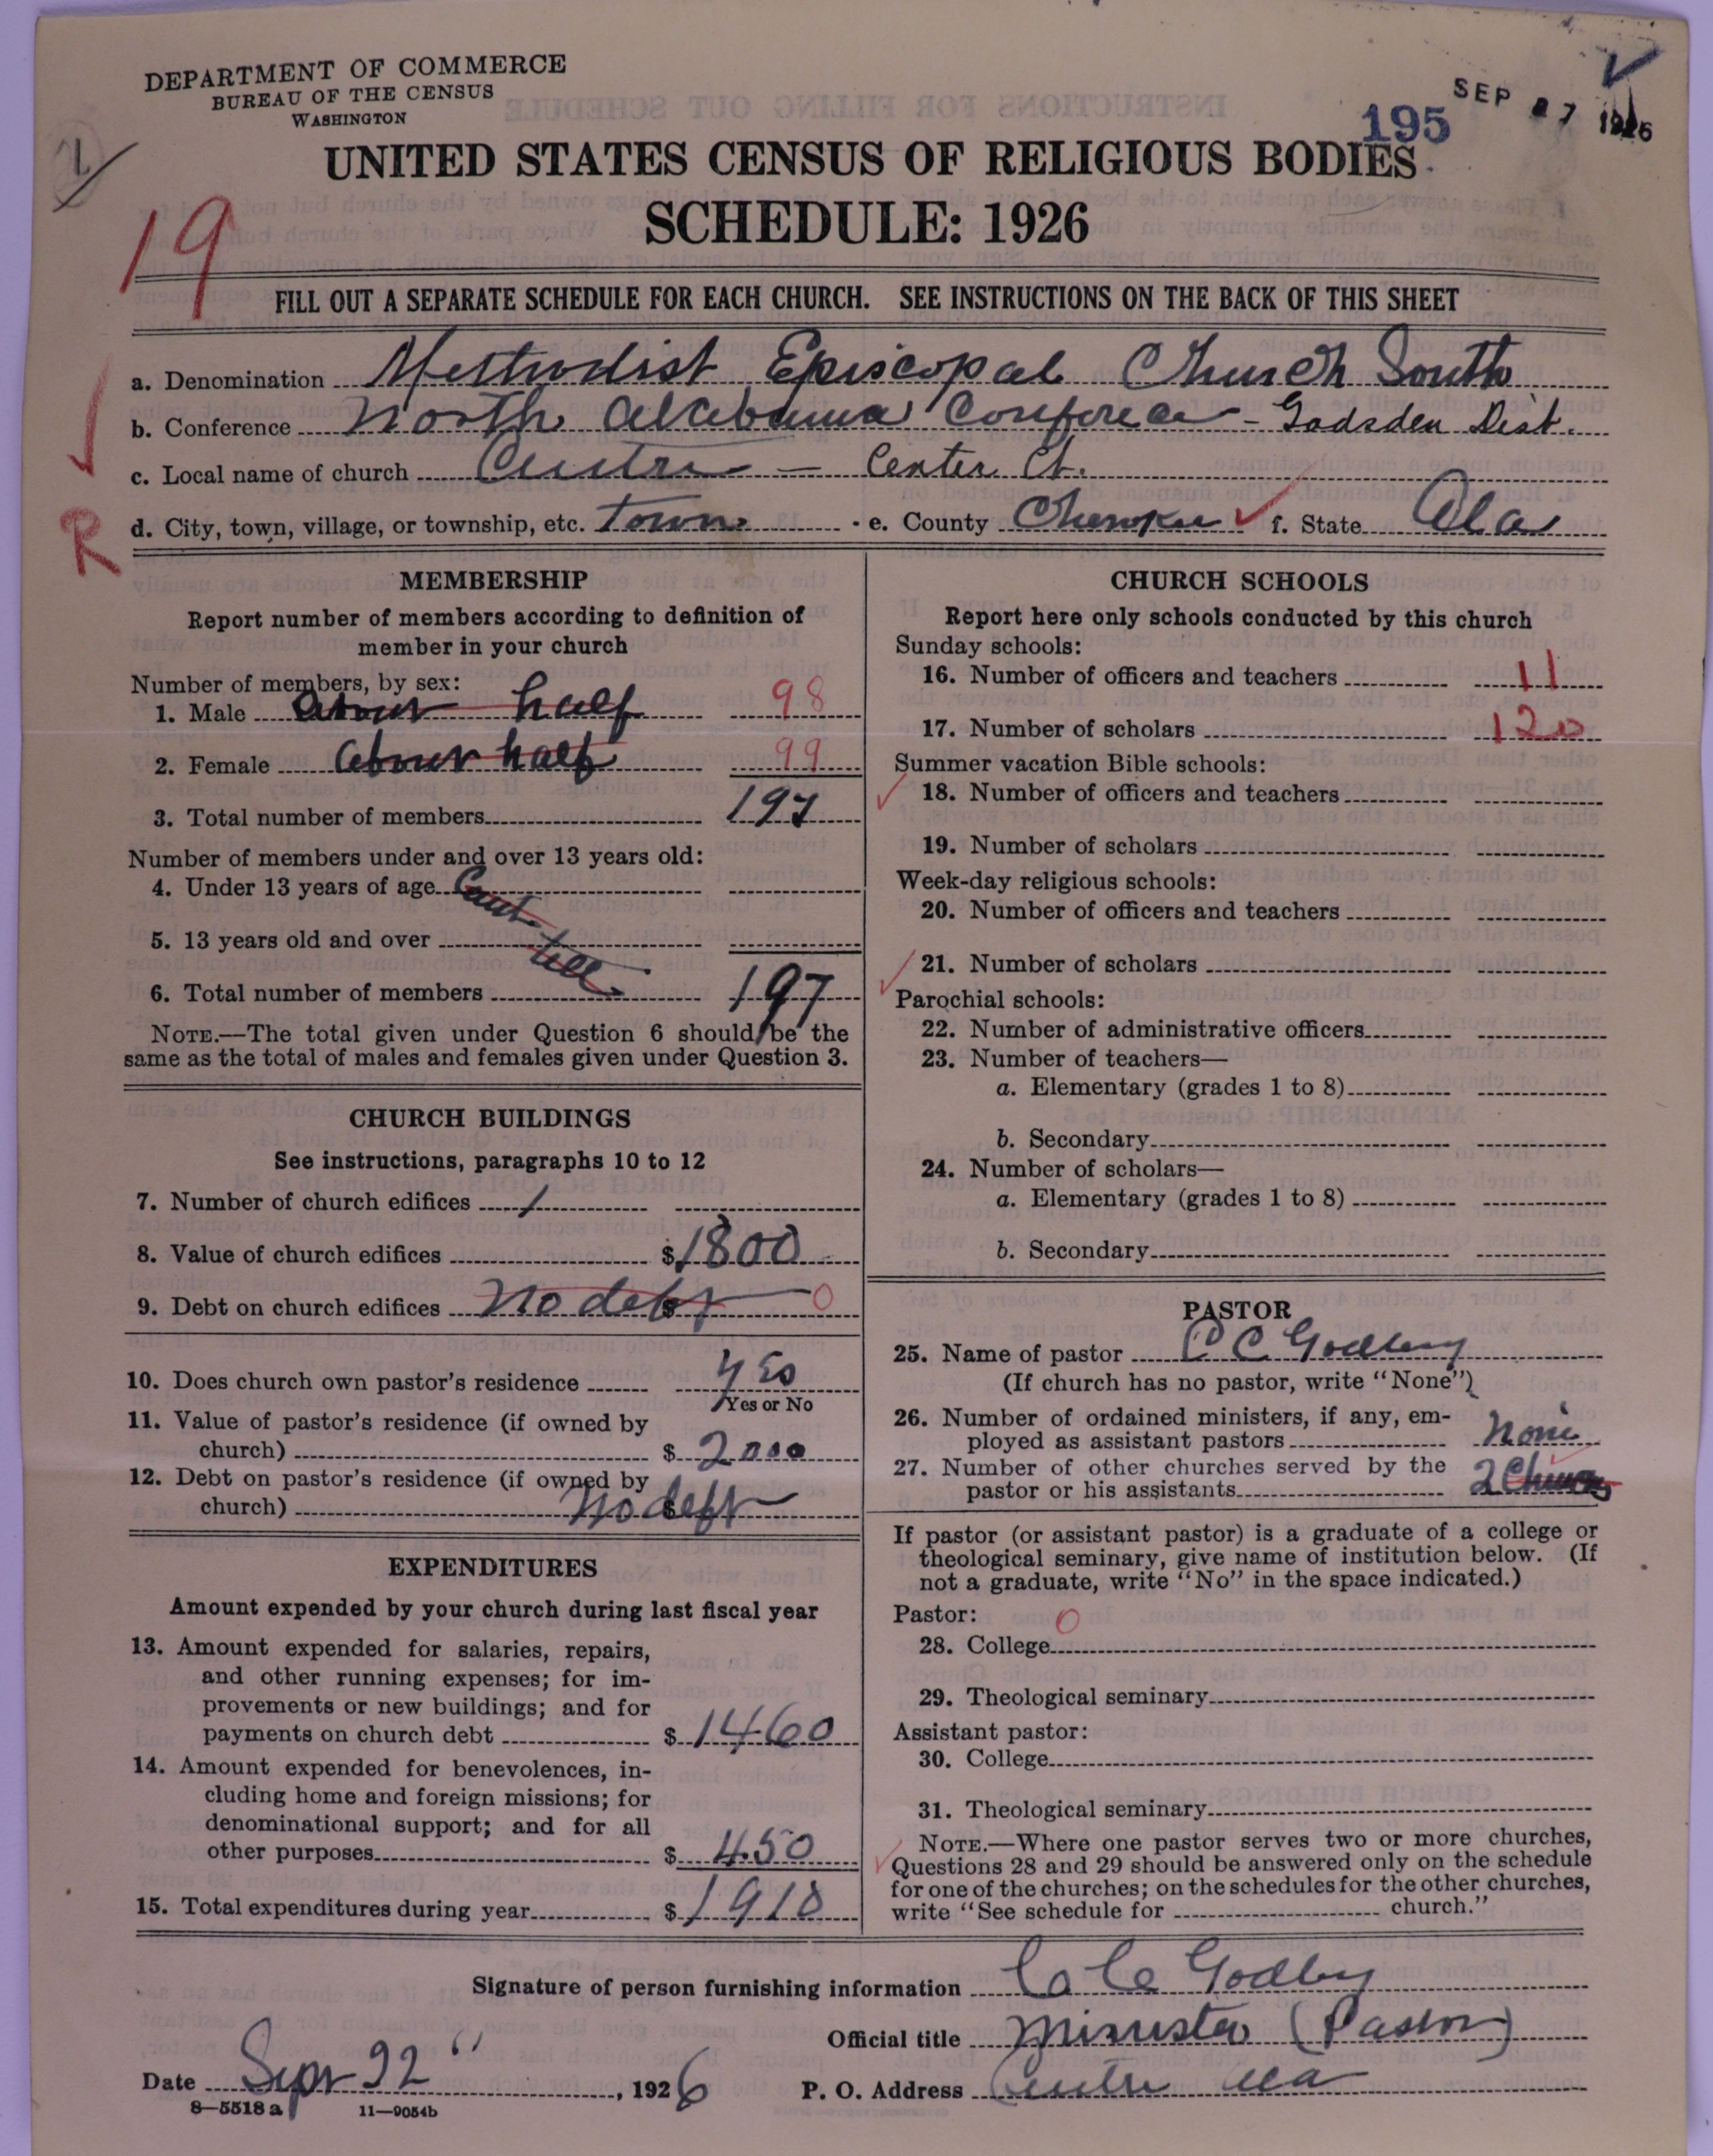 DEPARTMENT OF COMMERCE
BUREAU OF THE CENSUS
WASHINGTON
195
SEP 27 1926
UNITED STATES CENSUS OF RELIGIOUS BODIES
SCHEDULE: 1926
19
FILL OUT A SEPARATE SCHEDULE FOR EACH CHURCH. SEE INSTRUCTIONS ON THE BACK OF THIS SHEET
a. Denomination Methodist Episcopal Church South
b. Conference North Alabama Conference - Gadsden Dist.
c. Local name of church Centre — Center Ct.
R
d. City, town, village, or township, etc. Town e. County Cherokee f. State Ala
MEMBERSHIP
Report number of members according to definition of
member in your church
Number of members, by sex:
1. Male About half 98
2. Female About half 99
3. Total number of members 197
Number of members under and over 13 years old:
4. Under 13 years of age Cant
5. 13 years old and over tell
6. Total number of members 197
NOTE.—The total given under Question 6 should be the
same as the total of males and females given under Question 3.
CHURCH BUILDINGS
See instructions, paragraphs 10 to 12
7. Number of church edifices 1
8. Value of church edifices $1800
9. Debt on church edifices No debt 0
10. Does church own pastor's residence yes
Yes or No
11. Value of pastor's residence (if owned by
church) $ 2000
12. Debt on pastor's residence (if owned by
church) $ No debt
EXPENDITURES
Amount expended by your church during last fiscal year
13. Amount expended for salaries, repairs,
and other running expenses; for im-
provements or new buildings; and for
payments on church debt $ 1460
14. Amount expended for benevolences, in-
cluding home and foreign missions; for
denominational support; and for all
other purposes $ 450
15. Total expenditures during year $ 1910
CHURCH SCHOOLS
Report here only schools conducted by this church
Sunday schools:
16. Number of officers and teachers 11
17. Number of scholars 120
Summer vacation Bible schools:
18. Number of officers and teachers
19. Number of scholars
Week-day religious schools:
20. Number of officers and teachers
21. Number of scholars
Parochial schools:
22. Number of administrative officers
23. Number of teachers—
a. Elementary (grades 1 to 8)
b. Secondary
24. Number of scholars—
a. Elementary (grades 1 to 8)
b. Secondary
PASTOR
25. Name of pastor C C Godbey
(If church has no pastor, write "None")
26. Number of ordained ministers, if any, em-
ployed as assistant pastors None
27. Number of other churches served by the
pastor or his assistants 2
If pastor (or assistant pastor) is a graduate of a college or
theological seminary, give name of institution below. (If
not a graduate, write "No" in the space indicated.)
Pastor: 0
28. College
29. Theological seminary
Assistant pastor:
30. College
31. Theological seminary
NOTE.—Where one pastor serves two or more churches,
Questions 28 and 29 should be answered only on the schedule
for one of the churches; on the schedules for the other churches,
write "See schedule for church."
Signature of person furnishing information C C Godbey
Official title Minister (Pastor)
Date Sept 22", 1926 P. O. Address Centre Ala
8—5518 a 11—9054b